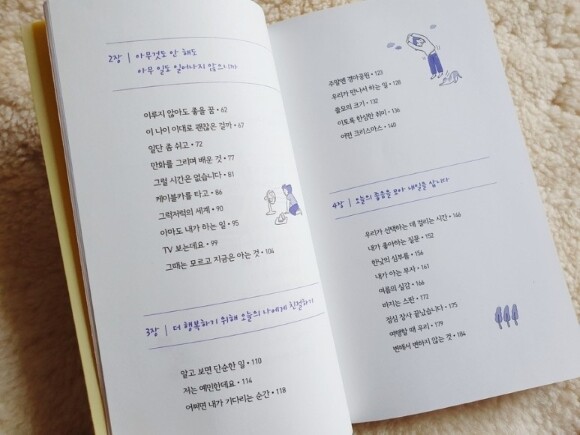 2장 | 아무것도 안 해도
아무 일도 일어나지 않으니까
이루지 않아도 좋을 꿈 • 62
이 나이 이대로 괜찮은 걸까 • 67
일단 좀 쉬고 • 72
만화를 그리며 배운 것 • 77
그럴 시간은 없습니다 • 81
케이블카를 타고 • 86
그럭저럭의 세계 • 90
아마도 내가 하는 일 • 95
TV 보는데요 • 99
그때는 모르고 지금은 아는 것 • 104
3장 | 더 행복하기 위해 오늘의 나에게 친절하기
알고 보면 단순한 일 • 110
저는 예민한데요 • 114
어쩌면 내가 기다리는 순간 • 118
주말엔 경마공원 • 123
우리가 만나서 하는 일 • 128
쓸모의 크기 • 132
이토록 한심한 취미 • 136
어떤 크리스마스 • 140
4장 | 오늘의 좋음을 모아 내일을 삽니다
우리가 산책하는 데 걸리는 시간 • 146
내가 좋아하는 질문 • 152
한낮의 심부름 • 156
내가 아는 부자 • 161
여름의 실감 • 166
마지는 스판 • 172
점심 장사 끝났습니다 • 175
여행할 때 우리 • 179
변해서 변하지 않는 것 • 184